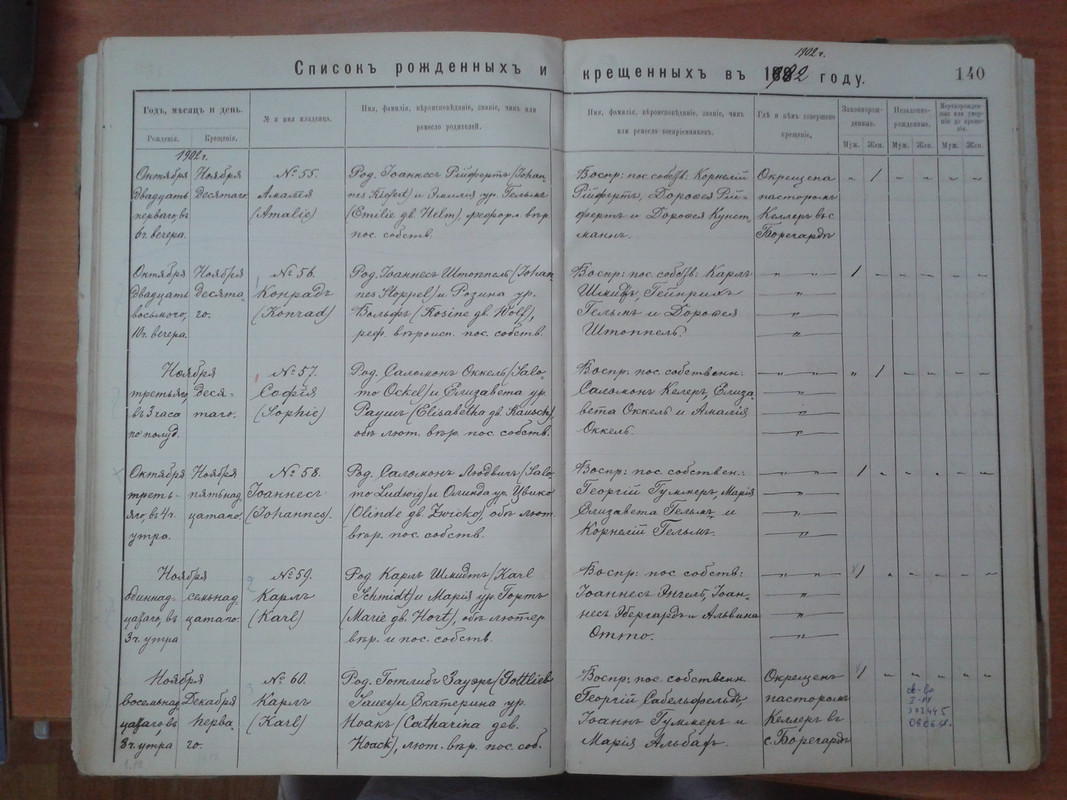 1902 г.
Списокъ рожденныхъ и крещенныхъ въ 1882 году.
140
Годъ, мѣсяцъ и день.
Рожденія. Крещенія.
№ и имя младенца.
Имя, фамилія, вѣроисповѣданіе, званіе, чинъ или
ремесло родителей.
Имя, фамилія, вѣроисповѣданіе, званіе, чинъ
или ремесло воспріемниковъ.
Гдѣ и кѣмъ совершено
крещеніе.
Законнорож-
денные.
Муж. Жен.
Незаконно-
рожденные.
Муж. Жен.
Муж. Жен.
1902 г.
Октября
двадцать
перваго, въ
6 ч. вечера.
Ноября
десятаго.
№ 55.
Амалія
(Amalie)
Род. Іоаннесъ Рейфертъ (Johan-
и Эмилія ур. Гельмъ
(Emilie дв. Helm), реформ. вѣр.
пос. собств.
Воспр: пос. собств: Корнелій
Рейфертъ, Доротея Рей-
фертъ и Доротея Кунст-
маннъ.
Окрещена
пасторомъ
Келлеръ въ с.
Борегардъ
Октября
двадцать
восьмого,
10 ч. вечера.
Ноября
десята-
го.
№ 56.
Конрадъ
(Konrad)
Род. Іоаннесъ Штоппель (Johan-
nes Stoppel) и Розина ур.
Вольфъ (Rosine дв. Wolf),
реф. вѣроисп. пос. собств.
Воспр: пос. собств: Карлъ
Шмидтъ, Гейнрихъ
Гельмъ и Доротея
Штоппель.
Ноября
третьяго,
въ 3 часа
по полуд.
деся-
таго.
№ 57.
Софія
(Sophie)
Род. Саломонъ Оккель (Salo-
mo Ockel) и Елизавета ур.
Раушъ (Elisabetha дв. Rausch),
обѣ лют. вѣр. пос. собств.
Воспр: пос. собственн:
Саломонъ Келеръ, Елиза
вета Оккель и Амалія
Оккель.
Октября
треть-
яго, въ 4 ч.
утра.
Ноября
пятьнад
цатаго.
№ 58.
Іоаннесъ
(Johannes).
Род. Саломонъ Людвигъ (Salo-
mo Ludwig) и Олинда ур. Цвико
(Olinde дв. Zwicko), обѣ лют.
вѣр. пос. собств.
Воспр: пос. собствен.:
Георгій Гуммеръ, Марія
Елизавета Гельмъ и
Корнелій Гельмъ.
Ноября
одиннад-
цатаго, въ
3 ч. утра
семьнад-
цатаго.
№ 59.
Карлъ
(Karl)
Род. Карлъ Шмидтъ (Karl
Schmidt) и Марія ур. Гортъ
(Marie дв. Hort), обѣ лютер
вѣр. и пос. собств.
Воспр: пос собств:
Іоаннесъ Энгель, Іоан-
несъ Эбергардъ и Альвина
Отто.
Ноября
восемьнад
цатаго, въ
8 ч. утра
Декабря
перва-
го.
№ 60.
Карлъ
(Karl)
Род. Готлибъ Зауэръ (Gottlieb
Sauer) и Екатерина ур.
Ноакъ (Catharina дев.
Noack), лют. вѣр. пос. соб.
Воспр: пос. собственн
Георгій Сабельфельдъ,
Іоаннъ Гуммеръ и
Марія
Окрещенъ
пасторомъ
Келлеръ въ
с. Борегардъ